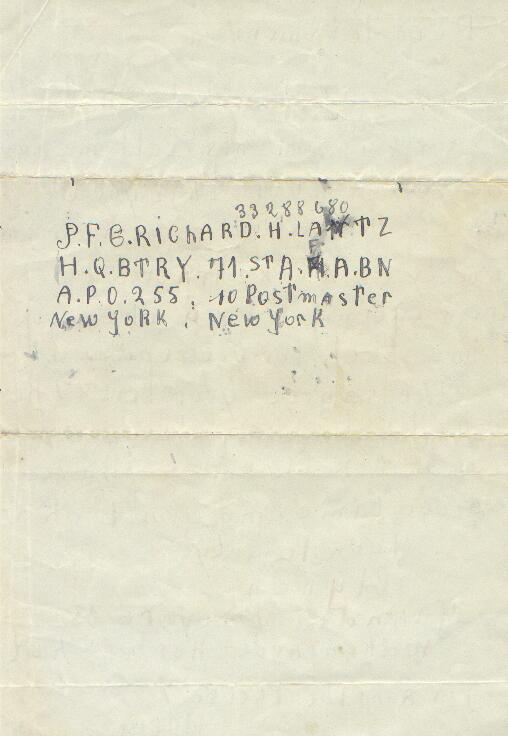 33288680
P.F.C. RIChARD. H. LANTZ
H.Q. BTRY. 71.ST A.F.A.BN
A.P.O. 255. 10 Postmaster
New YoRK. New YorK